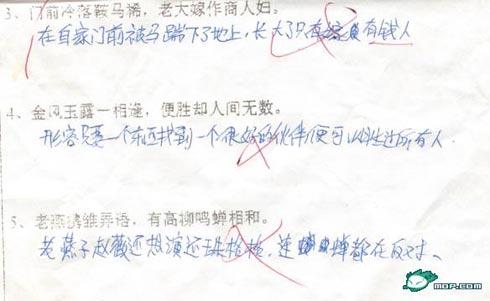 3、门前冷落鞍马稀，老大嫁作商人妇。
在自家门前被马踹下了地上，长大了只有嫁有钱人
4、金风玉露一相逢，便胜却人间无数。
形容只要一个东西找到一个很好的伙伴，便可以胜过所有人.
5、老燕携雏弄语，有高柳鸣蝉相和。
老燕子赵薇还想演还珠格格，连蝉都在反对、
MOP.COM